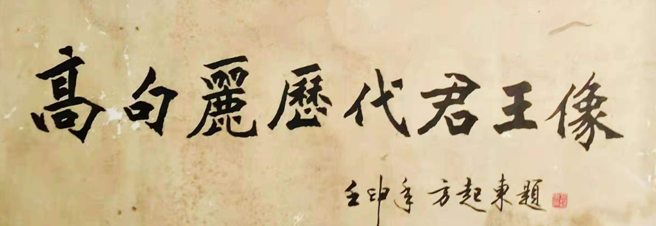 高句麗歷代君王像
壬申年 方起東題